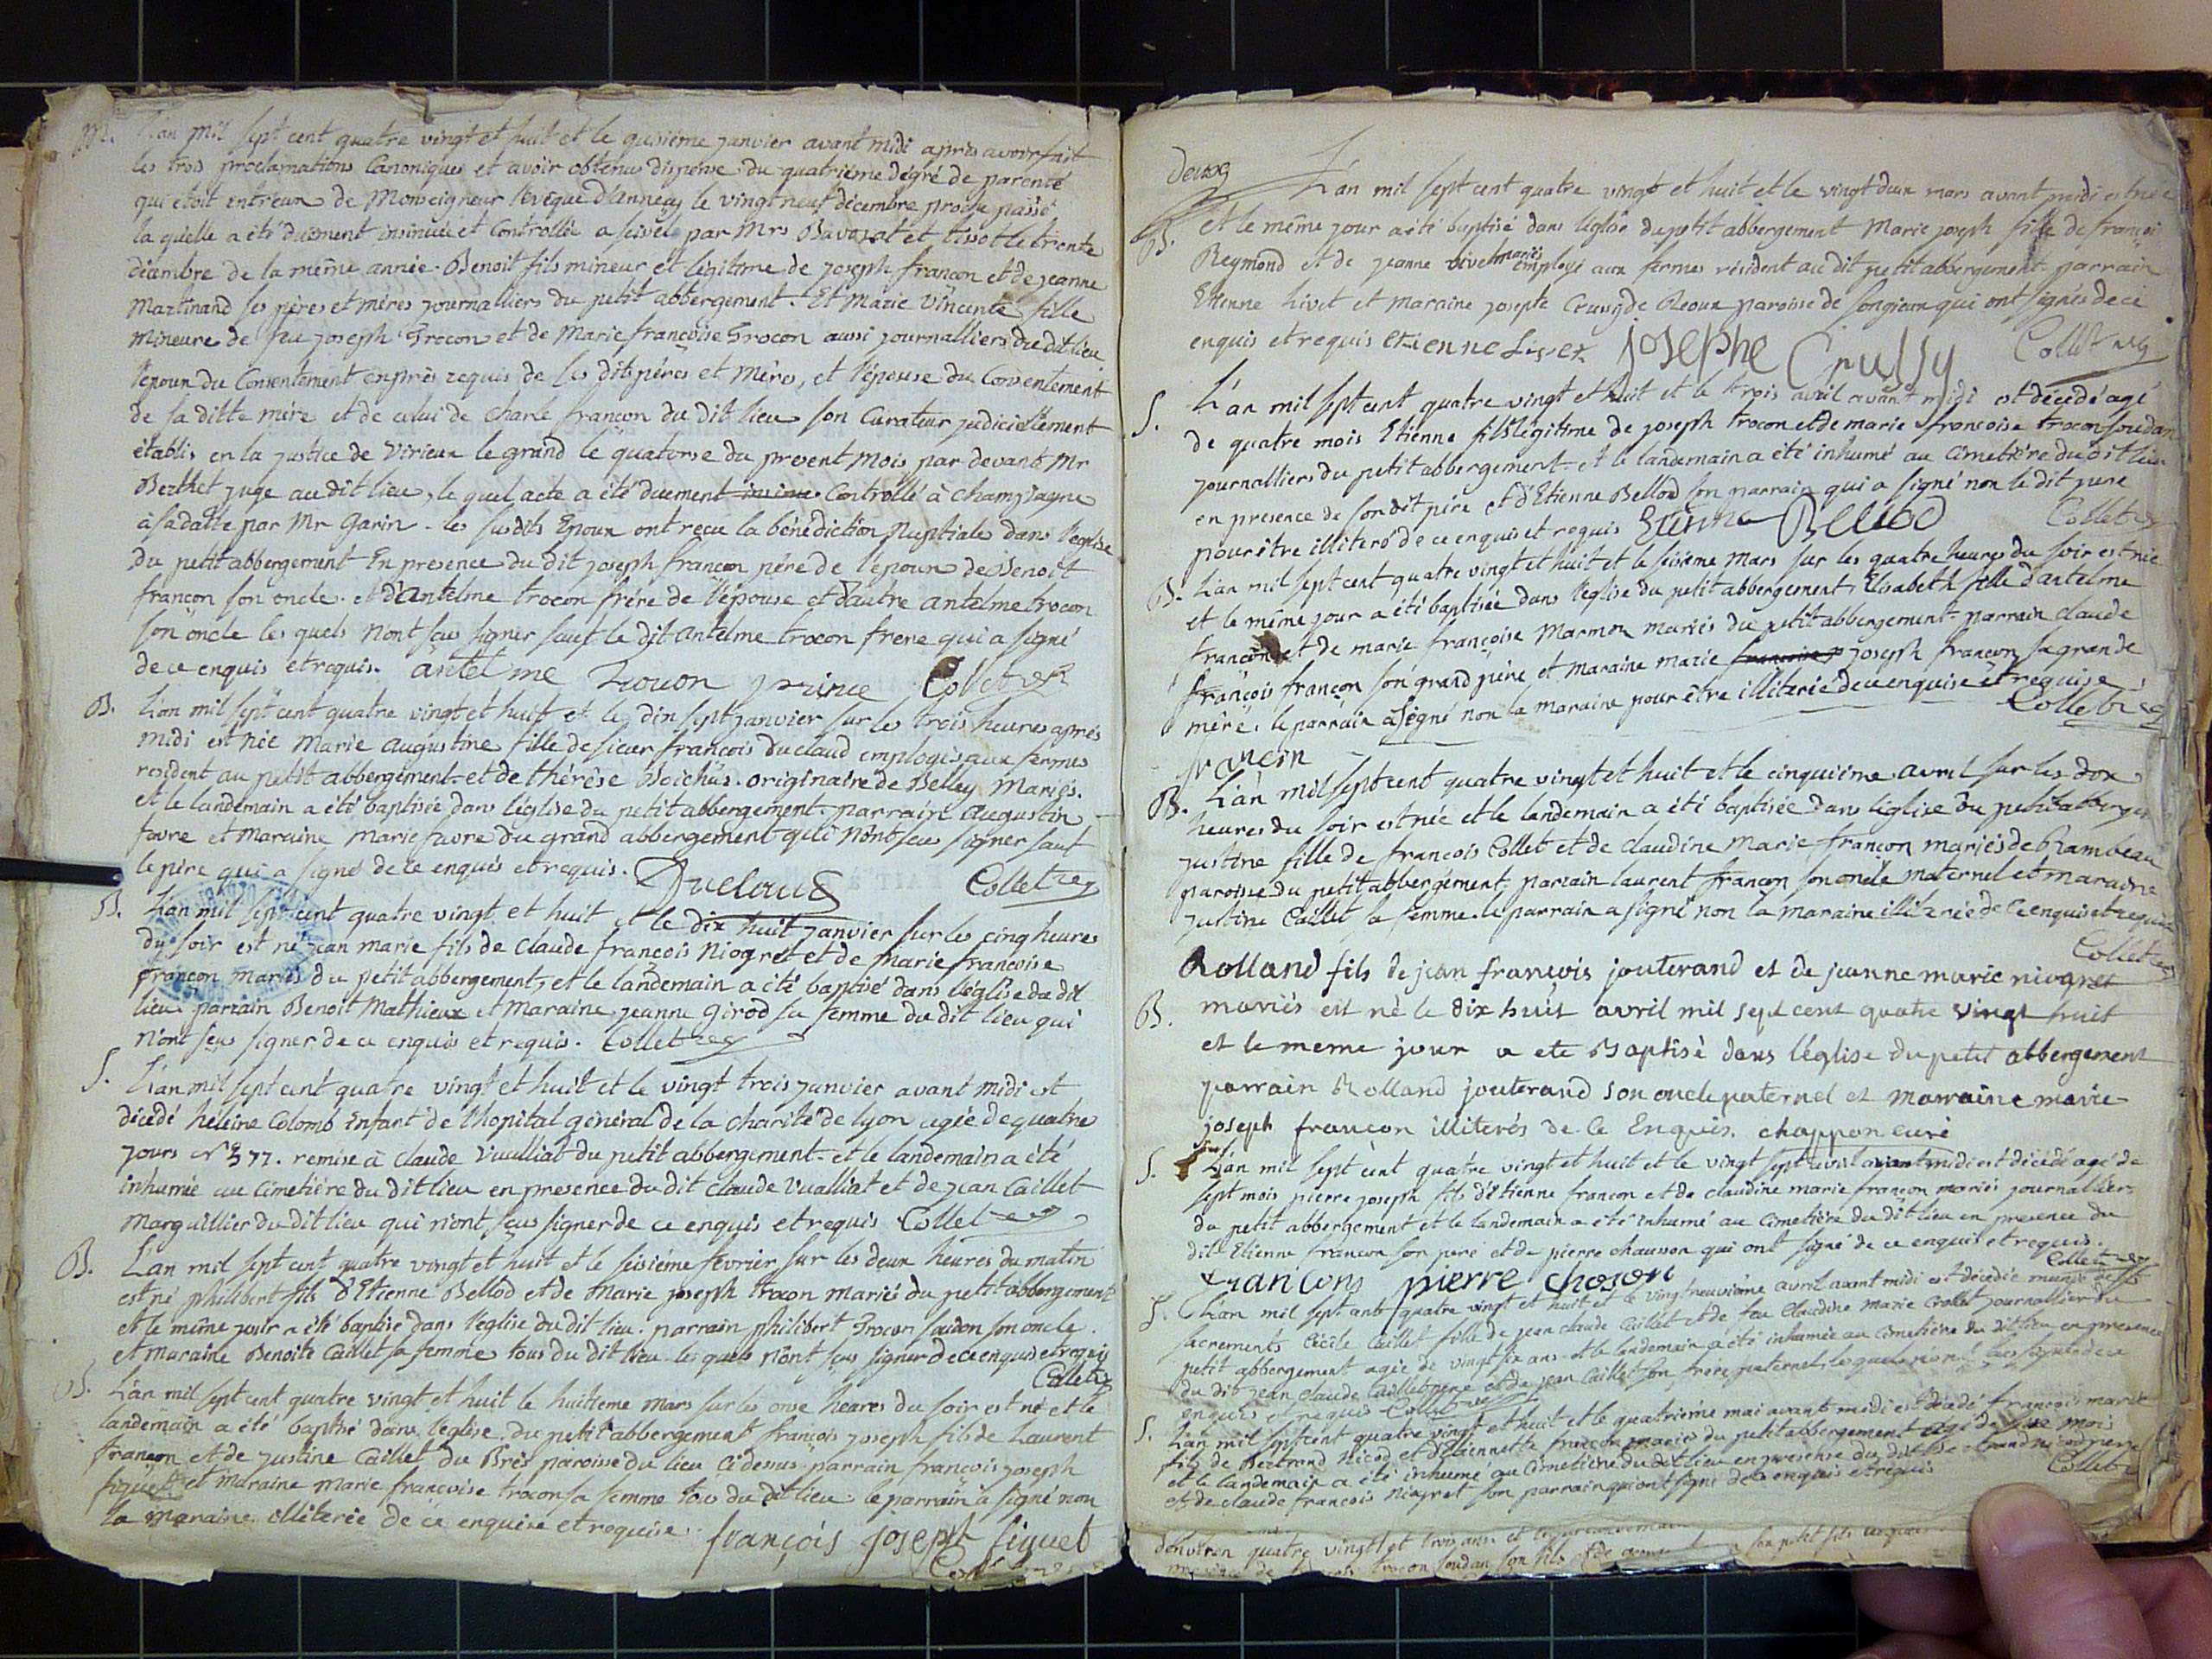 M. L'an mil sept cent quatre vingt et huit et le quisième janvier avant midi après avoir fait
les trois proclamations Canoniques et avoir obtenus dispense du quatrième dégré de parenté
qui étoit entreux de Monseigneur l'évêque d'Annecy le vingt neuf décembre proche passé
la quelle a été duement insinuée et Controllée a seissel par Mrs Bavozat et tissot le trente
décembre de la même année. Benoit fils mineur et légitime de joseph françon et de jeanne
Martinand ses pères et mères journalliers du petit abbergement. Et Marie Vincente fille
mineure de feu joseph Trocon et de Marie françoise Trocon aussi journalliers du dit lieu
l'époux du Consentement exprès requis de ses dits pères et mères, et l'épouse du Consentement
de sa ditte mère et de celui de Charle françon du dit lieu son Curateur judiciellement
établis en la justice de Virieux le grand le quatorse du present mois par devant Mr
Berthet juge au dit lieu, le quel acte a été duement Controllé à Champagne
à sa datte par Mr Garin. les susdits Epoux ont reçu la bénédiction Nuptiale dans l'eglise
du petit abbergement En presence du dit joseph françon père de l'époux de Benoit
françon son oncle. et d'antelme trocon frère de l'épouse et d'autre antelme trocon
son oncle les quels n'ont sçus signer sauf le dit antelme trocon frere qui a signé
de ce enquis et requis. antelme Trocon prince Collet
B. L'an mil sept cent quatre vingt et huit et le dix sept janvier sur les trois heures après
midi est née Marie augustine fille de sieur françois Duclaud employé aux fermes
resident au petit abbergement et de thérèse Boichus originaire de Belley Mariés.
et le landemain a été baptisée dans l'église du petit abbergement. parrain augustin
favre et Maraine Marie favre du grand abbergement qui n'ont sçus signer sauf
le père qui a signé de ce enquis et requis. Duclaud Collet
B. L'an mil sept cent quatre vingt et huit et le dix huit janvier sur les cinq heures
du soir est né jean marie fils de Claude françois Niogret et de Marie françoise
françon Mariés du petit abbergement, et le landemain a été baptisé dans l'église du dit
lieu parrain Benoit Mathieux et Maraine jeanne Girod sa femme du dit lieu qui
n'ont sçus signer de ce enquis et requis. Collet
S. L'an mil sept cent quatre vingt et huit et le vingt trois janvier avant midi est
décédé heleine Colomb Enfant de l'hopital général de la charité de lyon agée de quatre
jours N° 377. remise à Claude Vualliat du petit abbergement et le landemain a été
inhumée au Cimetière du dit lieu en presence du dit Claude Vualliat et de jean Caillet
Marguillier du dit lieu qui n'ont sçus signer de ce enquis et requis Collet
B. L'an mil sept cent quatre vingt et huit et le seisième fevrier sur les deux heures du matin
est né philibert fils d'Etienne Bellod et de Marie joseph trocon Mariés du petit abbergement
et le même jour a été baptisé dans l'église du dit lieu. parrain philibert Trocon soudan son oncle.
et Maraine Benoite Caillet sa femme tous du dit lieu les quels n'ont sçus signer de ce enquis et requis
Collet
B. L'an mil sept cent quatre vingt et huit le huitieme Mars sur les onse heures du soir est né et le
landemain a été baptisé dans l'église du petit abbergement françois joseph fils de Laurent
françon et de justine Caillet du Bris paroisse du lieu ci dessus. parrain françois joseph
figuet et Maraine Marie françoise trocon sa femme tous du dit lieu. le parrain a signé non
la Maraine illiterée de ce enquise et requise. françois joseph figuet
Collet
deux
B. L'an mil sept cent quatre vingt et huit et le vingt deux mars avant midi est née
et le même jour a été baptisé dans l'église du petit abbergement Marie joseph fille de françois
Reymond et de jeanne mariés employé aux fermes résident au dit petit abbergement parrain
Etienne Livet et Maraine josephe Crussy de paroisse de Songieux qui ont signés de ce
enquis et requis etienne Livet josephe Crussy Collet
S. L'an mil sept cent quatre vingt et huit et le trois avril avant midi est décédé agé
de quatre mois Etienne fils légitime de joseph trocon et de marie françoise trocon soudan
journalliers du petit abbergement et le landemain a été inhumé au Cimetière du dit lieu
en presence de son dit père et d'Etienne Bellod son parrain qui a signé non le dit père
pour être illiteré de ce enquis et requis Etienne Bellod Collet
B. L'an mil sept cent quatre vingt et huit et le seisième Mars sur les quatre heures du soir est née
et le même jour a été baptisée dans l'église du petit abbergement Elisabeth fille d'antelme
françon et de marie françoise Marmon Mariés du petit abbergement parrain Claude
françois françon son grand père et Maraine marie joseph françon sa grande
mère. le parrain a signé non la maraine pour être illiterée de ce enquise et requise
francin Collet
B. L'an mil sept cent quatre vingt et huit et le cinquième avril sur les dix
heures du soir est née et le landemain a été baptisée dans l'église du petit abberge
justine fille de françois Collet et de Claudine Marie françon mariés de Rambeau
paroisse du petit abbergement. parrain laurent françon son oncle maternel et maraine
justine Caillet sa femme. le parrain a signé non la maraine illiterée de ce enquis et requise
Collet
B. Rolland fils de jean françois jouterand et de jeanne marie niogret
mariés est né le dix huit avril mil sept cent quatre vingt huit
et le meme jour a ete Baptisé dans l'église du petit abbergement
parrain Rolland jouterand son oncle paternel et marraine marie
joseph françon illiterés de ce Enquis. chappon curé
S. L'an mil sept cent quatre vingt et huit et le vingt sept avril avant midi est décédé agé de
sept mois pierre joseph fils d'Etienne françon et de Claudine marie françon mariés journalliers
du petit abbergement et le landemain a été inhumé au Cimetière du dit lieu en presence du
dit Etienne françon son père et de pierre chausson qui ont signé de ce enquis et requis.
françons pierre choson Collet
S. L'an mil sept cent quatre vingt et huit et le vingt neuvième avril avant midi est décédée munie des
sacrements Cécile Caillet fille de jean claude Caillet et de feu Claudine Marie Crollet journallier du
petit abbergement agée de vingt six ans et le landemain a été inhumée au Cimetière du dit lieu en presence
du dit jean Claude Caillet père et de jean Caillet son frère paternel, lesquels n'ont sçus signer de ce
enquis et requis Collet
S. L'an mil sept cent quatre vingt et huit et le quatrième mai avant midi est décédé françois marie
fils de Bertrand Nicod et d'Etiennette françon mariés du petit abbergement agé de mois
et le landemain a été inhumé au Cimetière du dit lieu en presence du dit Bertrand Nicod père
et de claude françois Niogret son parrain qui ont signé de ce enquis et requis Collet
d'environ quatre vingt et trois ans et
trocon soudan son fils et de